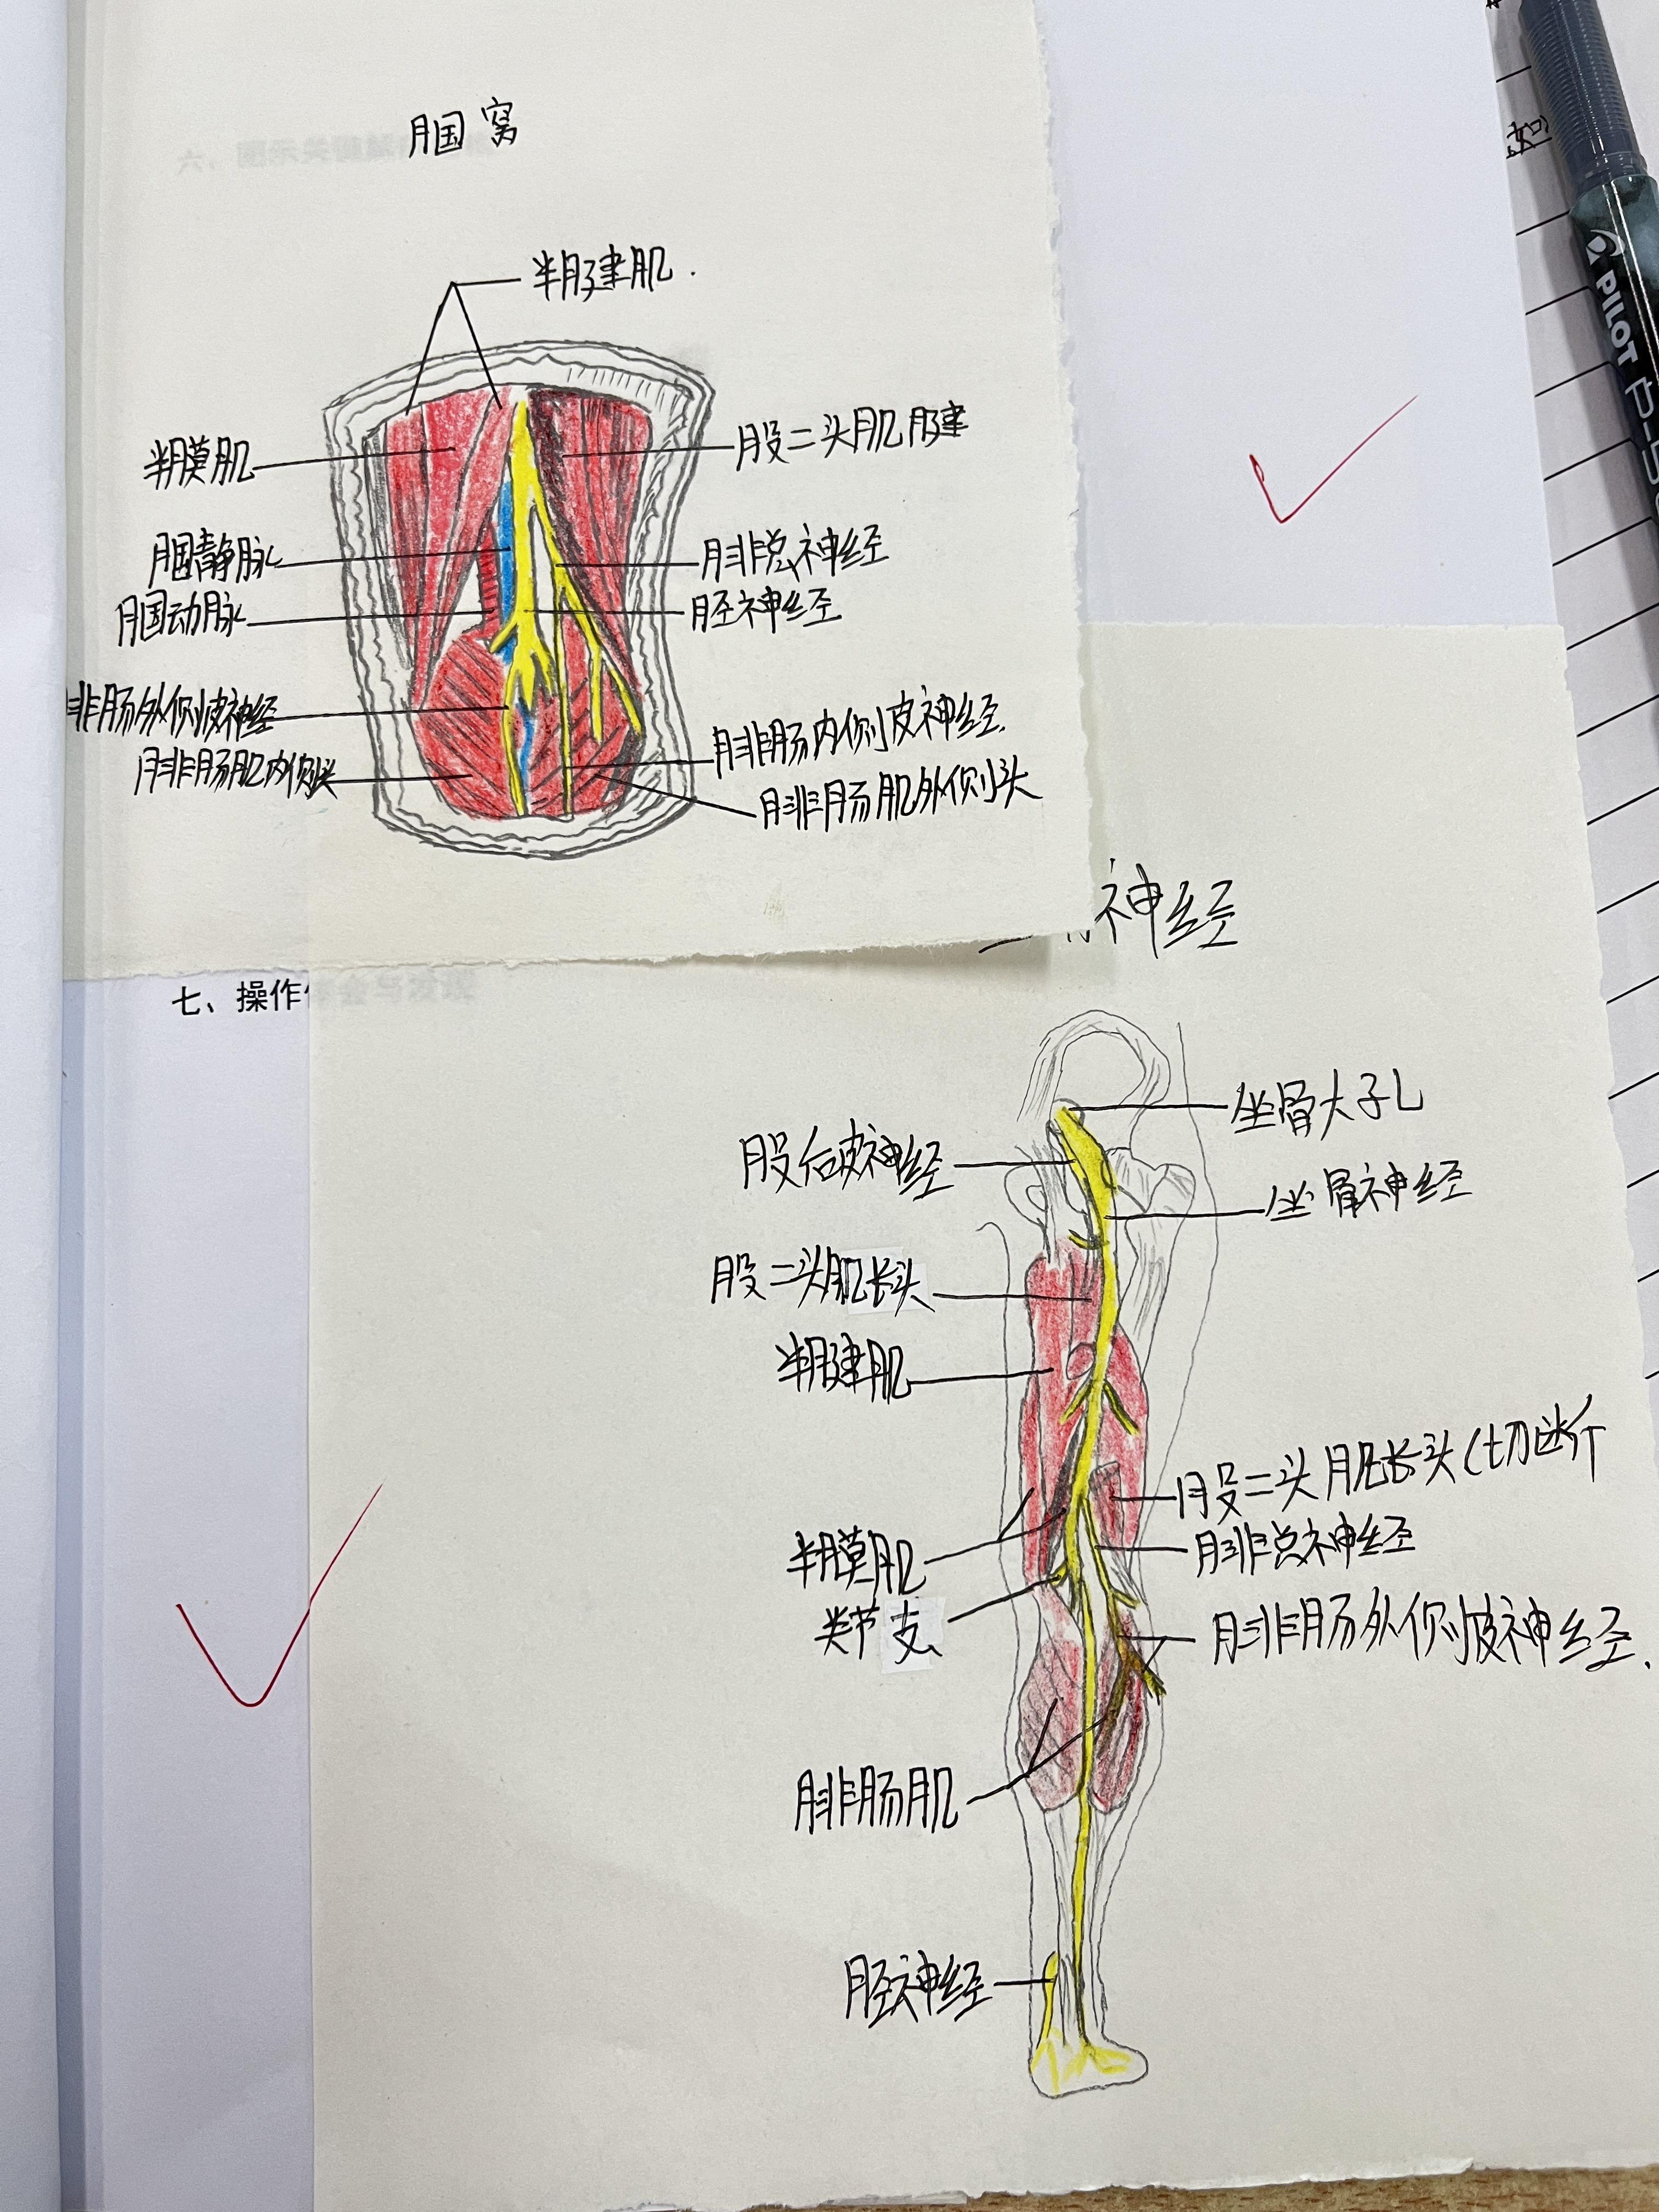 腘窝
半腱肌.
半膜肌
股二头肌腱
腘静脉
腓总神经
腘动脉
胫神经
腓肠外侧皮神经
腓肠内侧皮神经.
腓肠肌内侧头
腓肠肌外侧头
神经
七、操作
坐骨大孔
股后皮神经
坐骨神经
股二头肌长头
半腱肌
股二头肌长头(切断
半膜肌
腓总神经
关节支
腓肠外侧皮神经.
腓肠肌
胫神经
PILOT